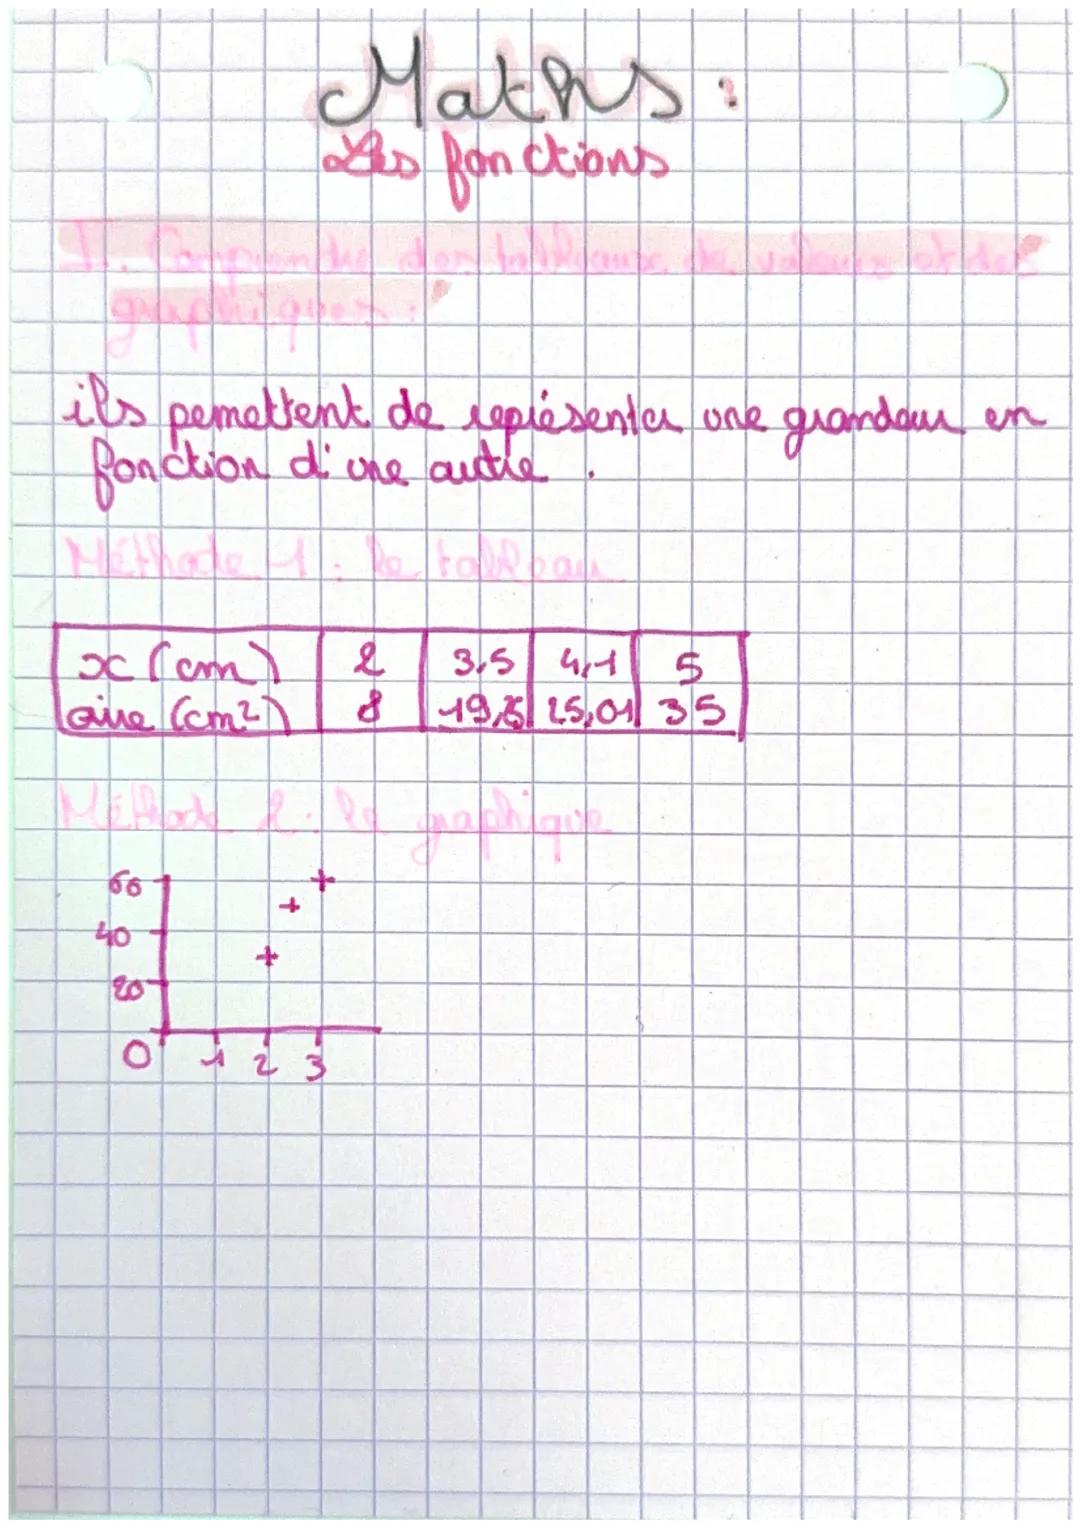 Maths :
Les fonctions
I. Comprendre des tableaux de valeurs et des
graphiques :
ils pemettent de représenter une grandeur en
fonction d'une autre .
Méthode 1 : le tableau
x (cm) 2 3,5 4,1 5
aire (cm²) 8 19,25 25,01 35
Méthode 2 : le graphique
60
40
20
0 1 2 3